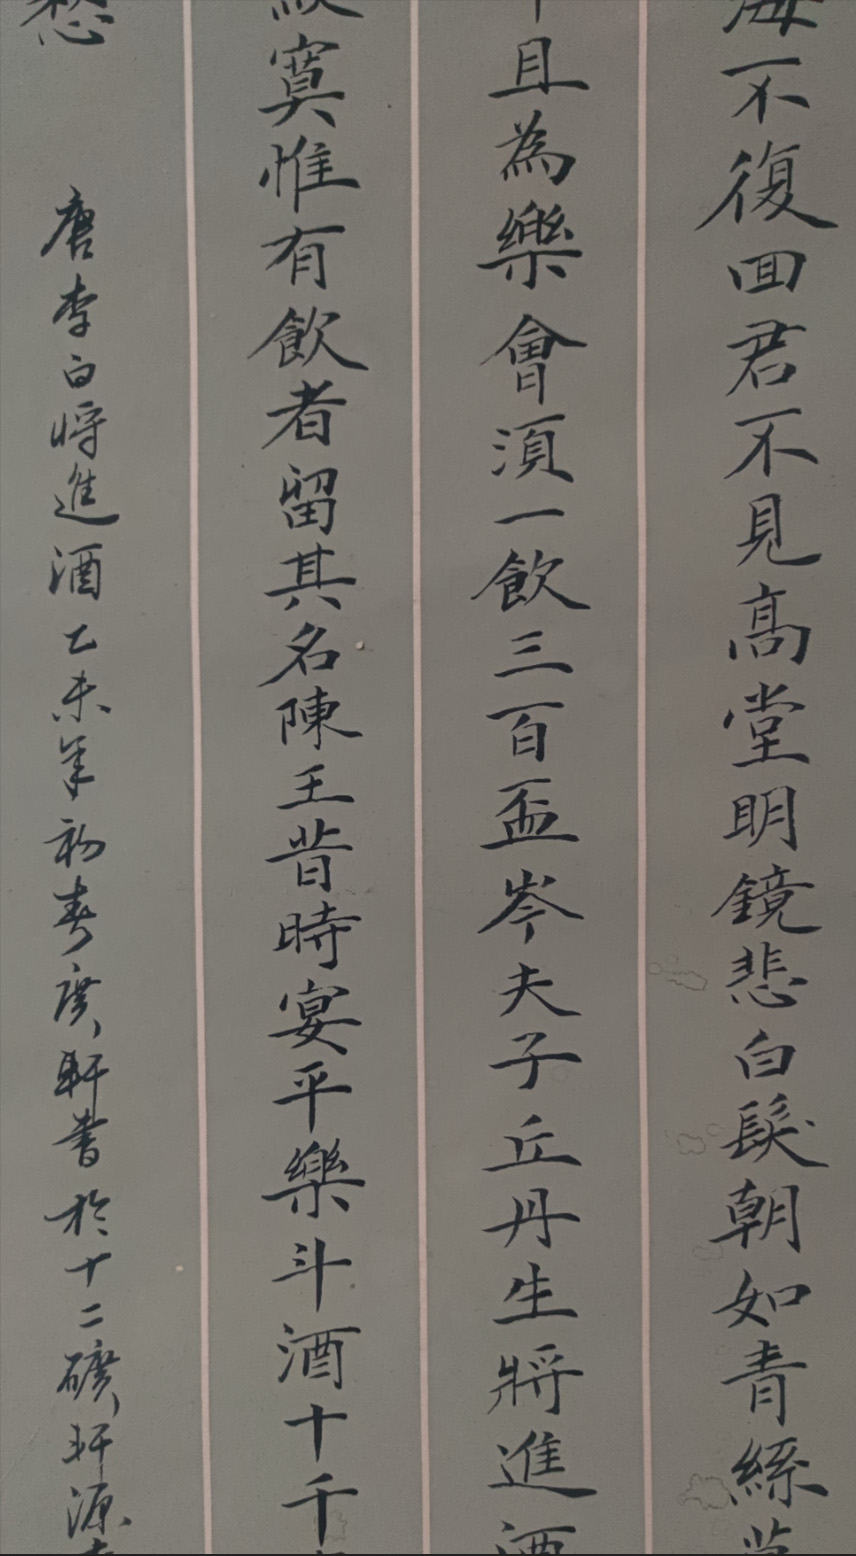 海不復回君不見高堂明鏡悲白髮朝如青絲暮
且為樂會須一飲三百盃岑夫子丘丹生將進酒
寞惟有飲者留其名陳王昔時宴平樂斗酒十千
愁
唐李白将進酒乙未年初春廣軒書於十二礦軒源